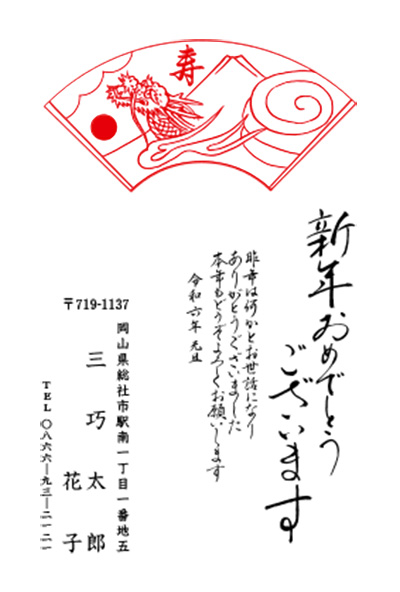 寿
新年おめでとう
ございます
昨年は何かとお世話になり
ありがとうございました
本年もどうぞよろしくお願いします
令和六年 元旦
〒719-1137
岡山県総社市駅南一丁目一番地五
三巧太郎
花子
TEL 〇八六六―九三―二一二一